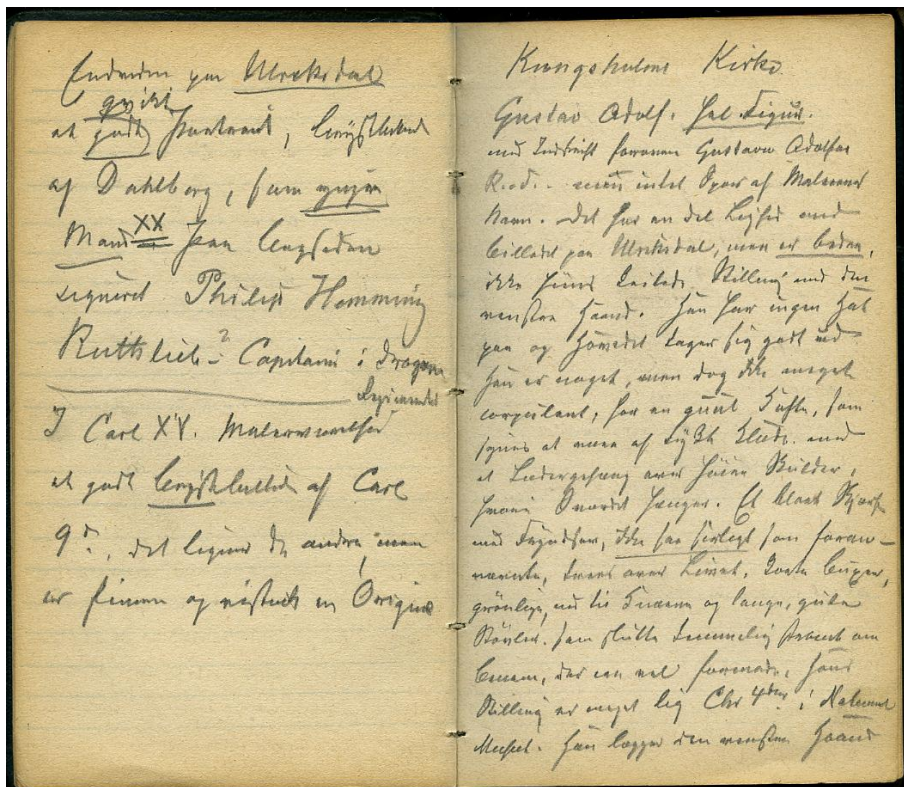 Endvidere paa Ulriksdal
et godt Portrait, Brystbillede
af Dahlberg, som yngre
Mand XX Paa Bagsiden
signeret Philip Hemming
Ruthlieb? Capitain i Dragon
Regimentet
I Carl XV. Malerværelse
et godt Brystbilled af Carl
9de, det ligner de andre, men
er finere og vistnok en Original
Kungsholms Kirke
Gustav Adolf. Hel Figur.
med Indskrift foroven Gustavus Adolfus
men intet Spor af Malerens
Navn. Det har en del Lighed med
Billedet paa Ulriksdal, men er bedre,
ikke hiins Stilling med den
venstre Haand. Han har ingen Hat
paa og Hovedet tager sig godt ud
Han er noget, men dog ikke meget
corpulent, har en guul Kofte, som
synes at være af tykt Klæde med
et Lædergehæng over høire Skulder,
hvori Sværdet hænger. Et blaat Skjærf
med Fryndser, ikke saa sirligt som foran-
nævnte, tværs over Livet. Korte Buxer,
grønlige, ned til Knæerne og lange, gule
Støvler, som slutte temmelig stramt om
Benene, der ere vel formede, Hans
Stilling er meget lig Chr 4des i National
Museet. Han lægger den venstre Haand